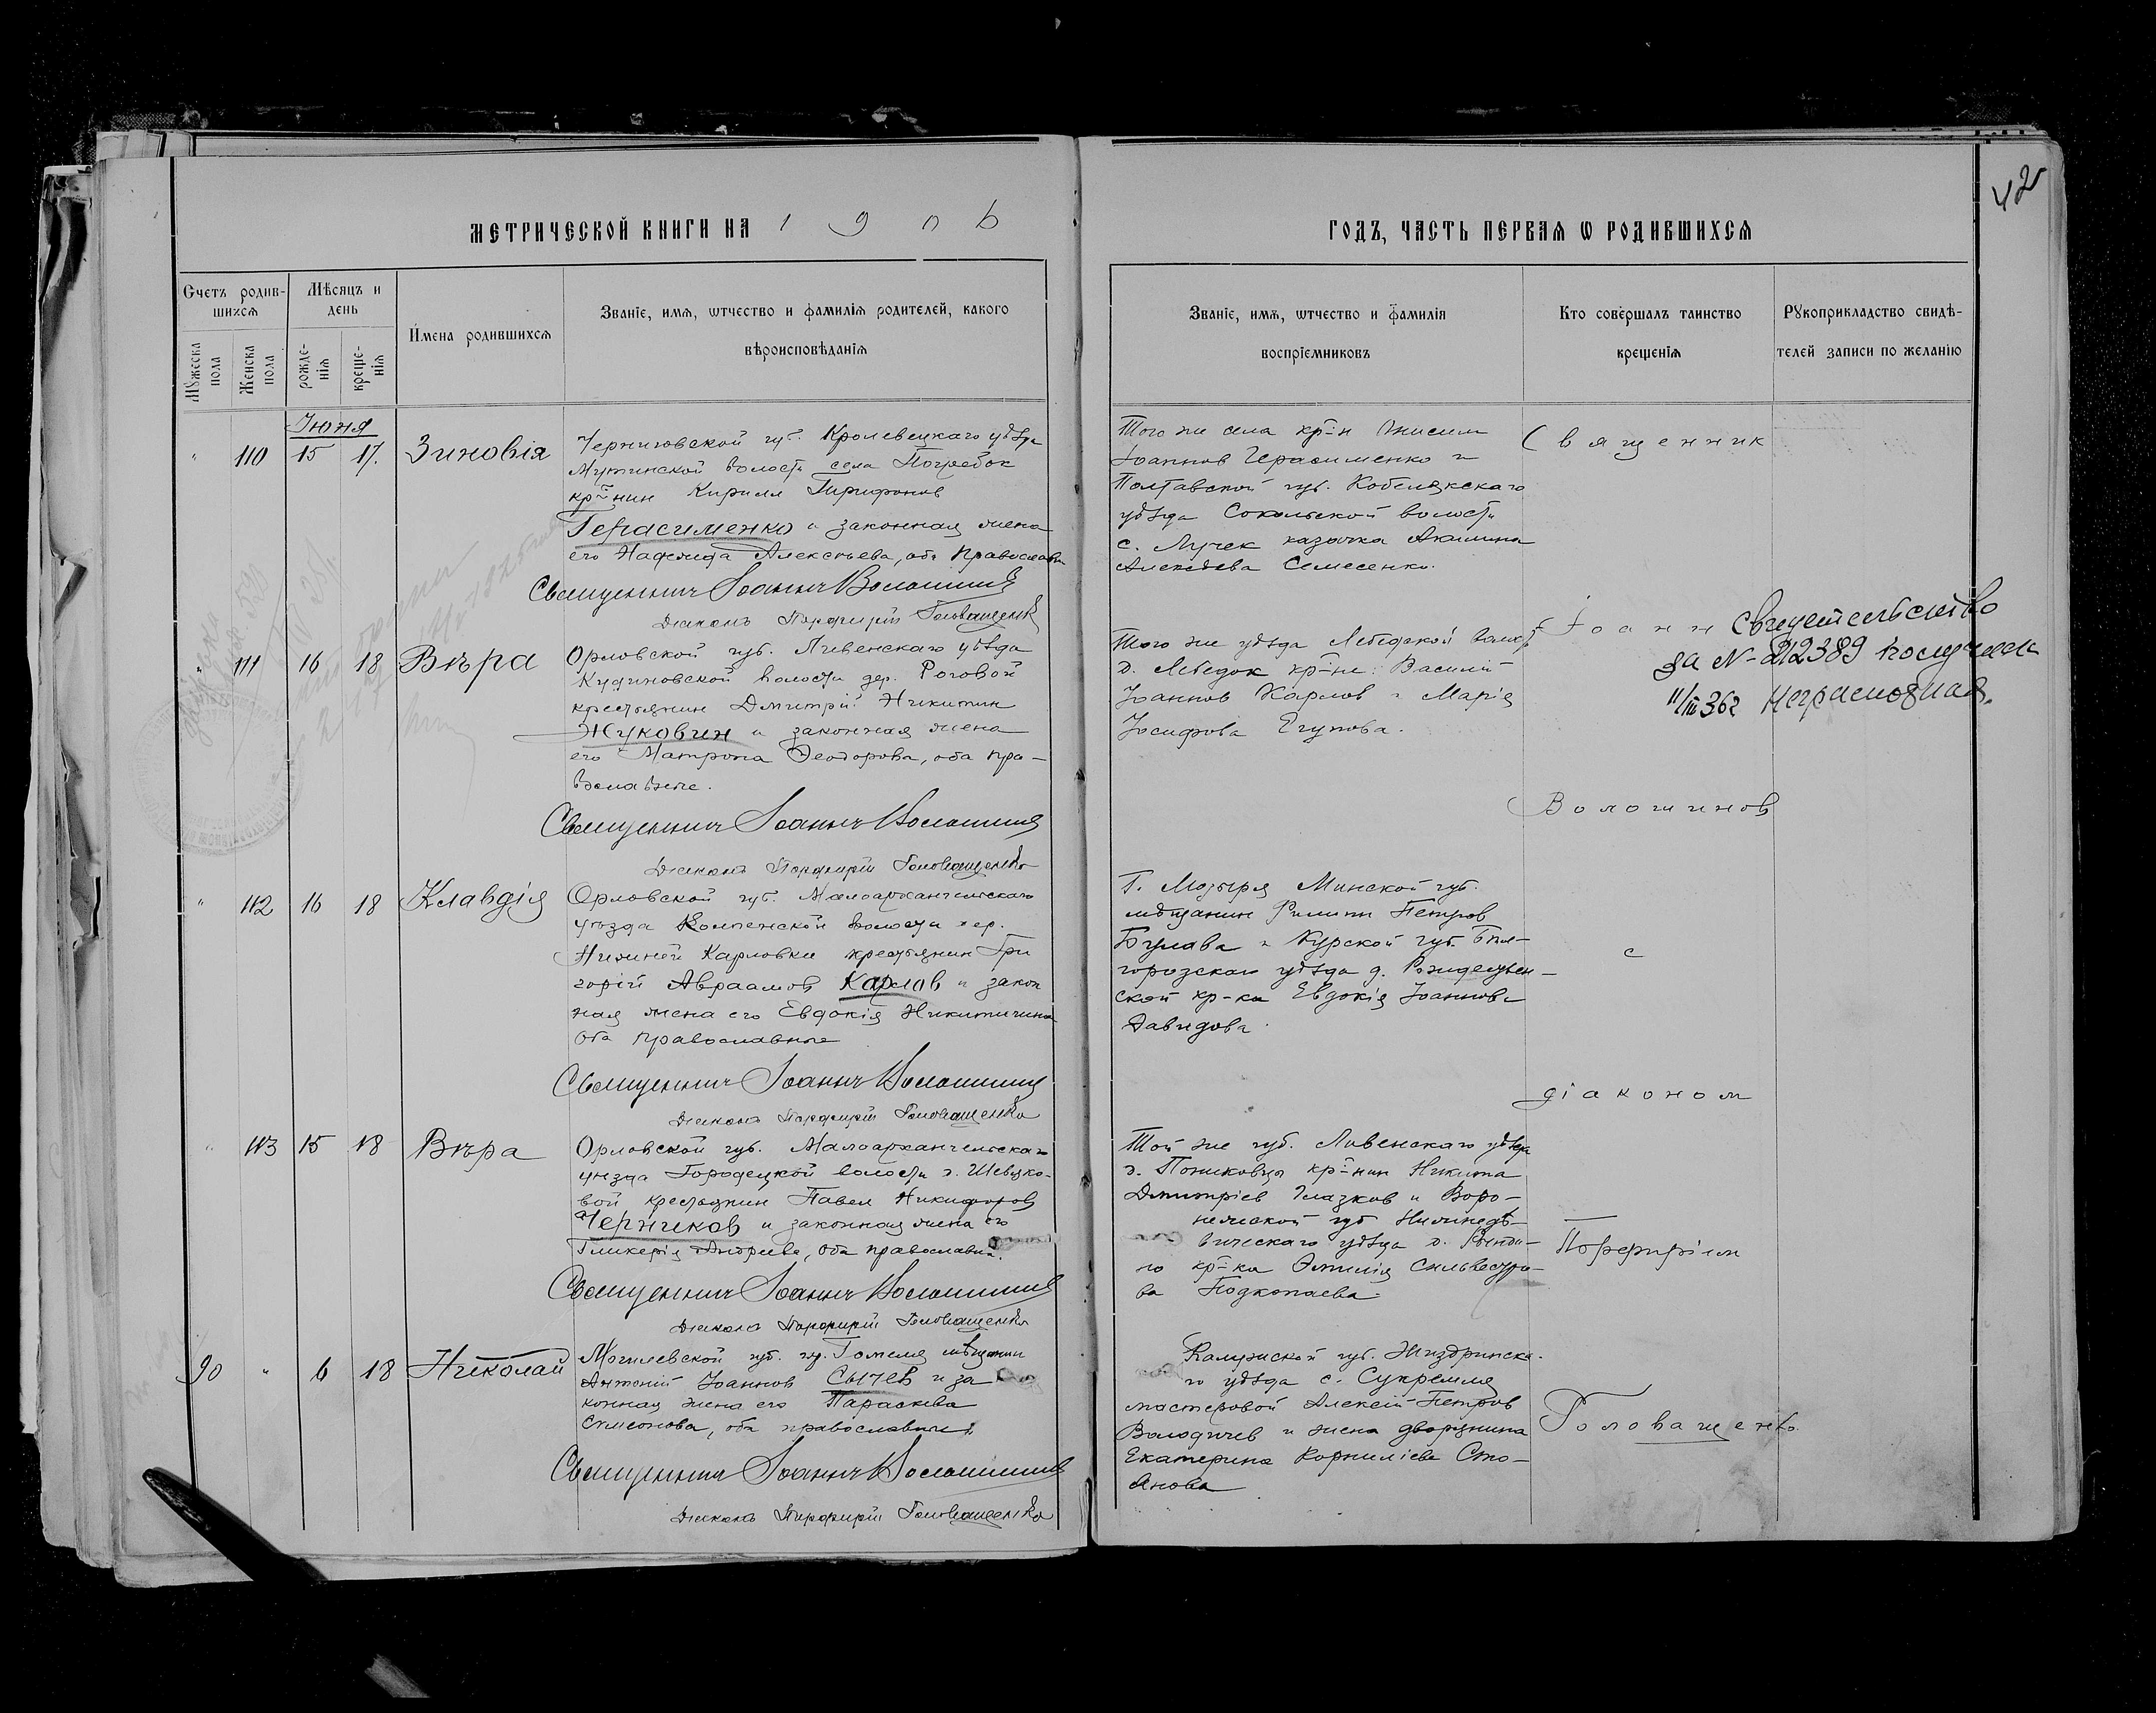 42
МЕТРИЧЕСКОЙ КНИГИ НА 1 9
ГОДЪ, ЧАСТЬ ПЕРВАЯ Ѡ РОДИВШИХСЯ
Счетъ родив-
шихся
Мѣсяцъ и
день
Имена родившихся
Званіе, имя, ѡтчество и фамилія родителей, какого
вѣроисповѣданія
Мужеска
пола
Женска
пола
рожде-
нія
креще-
нія
Званіе, имя, ѡтчество и фамилія
воспріемниковъ
Кто совершалъ таинство
крещенія
Рукоприкладство свидѣ-
телей записи по желанію
Июня
" 110 15 17. Зиновія
Черниговской губ. Кролевецкаго уѣзда
Мутинской волости села Погребок
кр-нин Кирилл Трифонов
Герасименко и законная жена
его Надежда Алексѣева, оба православн
Священникъ Іоаннъ Волошинов
Діаконъ Порфирій Головащенко
Того же села кр-н
Іоаннов Герасименко и
Полтавской губ. Кобелякскаго
уѣзда Сокольской волости
с. Лучек казачка Акилина
Алексѣева Семесенко.
Священник
" 111 16 18 Вѣра
Орловской губ. Ливенскаго уѣзда
Кудиновской волости дер. Роговой
крестьянин Дмитрій Никитин
Жуковин и законная жена
его Матрона Ѳеодорова, оба пра-
вославные.
Священникъ Іоаннъ Волошинов
Діаконъ Порфирій Головащенко
Того же уѣзда Лебедской волост
д. Лебедок кр-не: Василій
Іоаннов Карлов и Марія
Іосифова Егупова.
Іоанн
Свидетельство
за № 212389 получила
11/III 36г Неграмотная.
Волошинов
" 112 16 18 Клавдія
Орловской губ. Малоархангельскаго
уѣзда волости дер.
Нижней Карловки крестьянин Гри
горій Авраамов Карлов и закон
ная жена его Евдокія Никитична
оба православные
Священникъ Іоаннъ Волошинов
Діаконъ Порфирій Головащенко
Г. Мозыря Минской губ.
мѣщанин Филипп Петров
Булава и Курской губ. Бѣл-
городскаго уѣзда д. Рождествен-
ской кр-ка Евдокія Іоаннова
Давидова.
с
діаконом
" 113 15 18 Вѣра
Орловской губ. Малоархангельскаго
уѣзда Городецкой волости д. Шевцко-
вой крестьянин Павел Никифоров
Черников и законная жена его
Гликерія Андреева, оба православн.
Священникъ Іоаннъ Волошинов
Діаконъ Порфирій Головащенко
Той же губ. Ливенскаго уѣзда
кр-нин Никита
Дмитріев Глазков и Воро-
нежской губ Нижнедѣ-
вическаго уѣзда д.
го кр-ка Эмилія Сильвестро-
ва Подкопаева.
Порфиріем
90 " 6 18 Николай
Могилевской губ. гор. Гомеля мѣщанин
Антоній Іоаннов Сычев и за
конная жена его Параскева
Симеонова, оба православные.
Священникъ Іоаннъ Волошинов
Діаконъ Порфирій Головащенко
Калужской губ. Жиздринска-
го уѣзда с. Сукремля
мастеровой Алексій Петров
Володичев и жена дворянина
Екатерина Корниліева Сто-
янова
Головащенко.